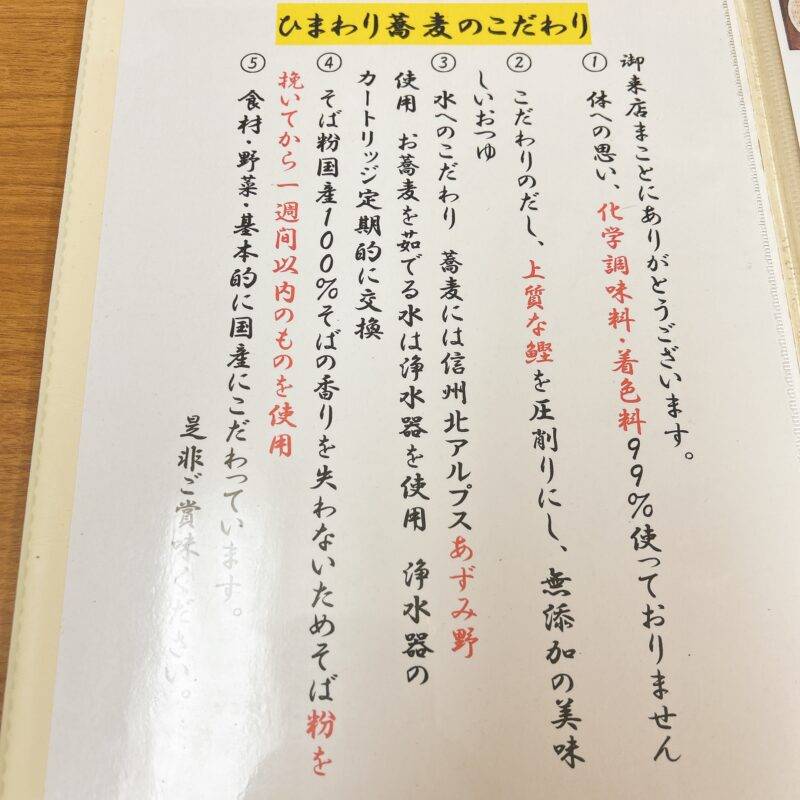 ひまわり蕎麦のこだわり
御来店まことにありがとうございます。
① 体への思い、化学調味料・着色料99%使っておりません
② こだわりのだし、上質な鰹を圧削りにし、無添加の美味
しいおつゆ
③ 水へのこだわり 蕎麦には信州北アルプスあずみ野
使用 お蕎麦を茹でる水は浄水器を使用 浄水器の
カートリッジ定期的に交換
④ そば粉国産100%そばの香りを失わないためそば粉を
挽いてから一週間以内のものを使用
⑤ 食材・野菜・基本的に国産にこだわっています。
是非ご賞味ください。